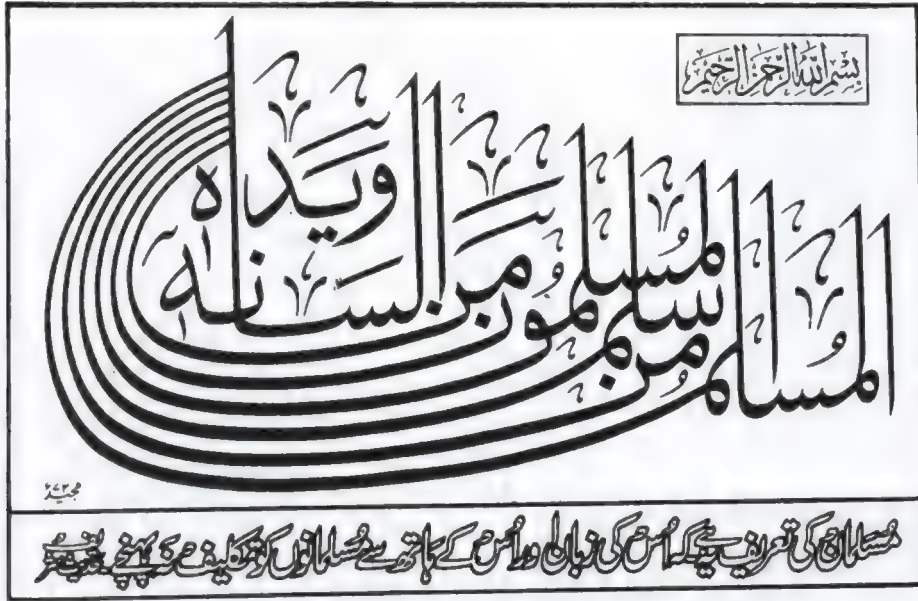 بِسْمِ اللهِ الرَّحْمٰنِ الرَّحِيْمِ
المُسلم من سلم المُسلمُون من لسانه ويده
مجید
مُسلمان کی تعریف یہ ہے کہ اُس کی زبان اور اُس کے ہاتھ سے مُسلمانوں کو تکلیف نہ پہنچے۔